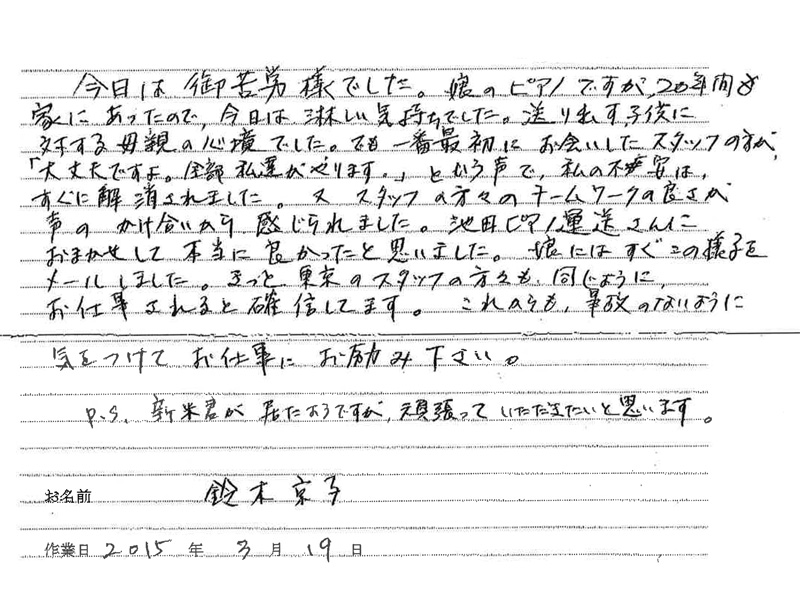 今日は御苦労様でした。娘のピアノですが、20年間も
家にあったので、今日は淋しい気持ちでした。送り出す子供に
対する母親の心境でした。でも一番最初にお会いしたスタッフの方が、
「大丈夫ですよ。全部私達がやります。」という声で、私の不安は、
すぐに解消されました。又スタッフの方々のチームワークの良さが
声のかけ合いから感じられました。池田ピアノ運送さんに
おまかせして本当に良かったと思いました。娘にはすぐこの様子を
メールしました。きっと東京のスタッフの方々も、同じように、
お仕事されると確信してます。これからも、事故のないように
気をつけてお仕事にお励み下さい。
P.S. 新米君が居たようですが、頑張っていただきたいと思います。
お名前 鈴木京子
作業日 2015年 3月 19日